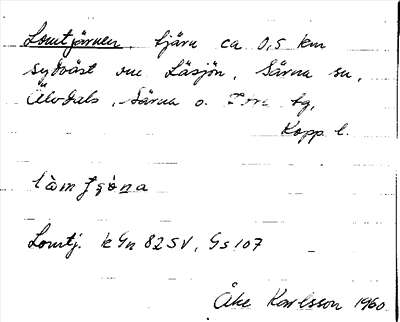 Lomtjärnen. tjärn ca 0,5 km
sydväst om Läsjön, Särna sn,
Älvdals, Särna o. Idre tg,
Kopp. l.
Lomtj. k Gn 82 SV, Gs 107
Åke Karlsson 1960